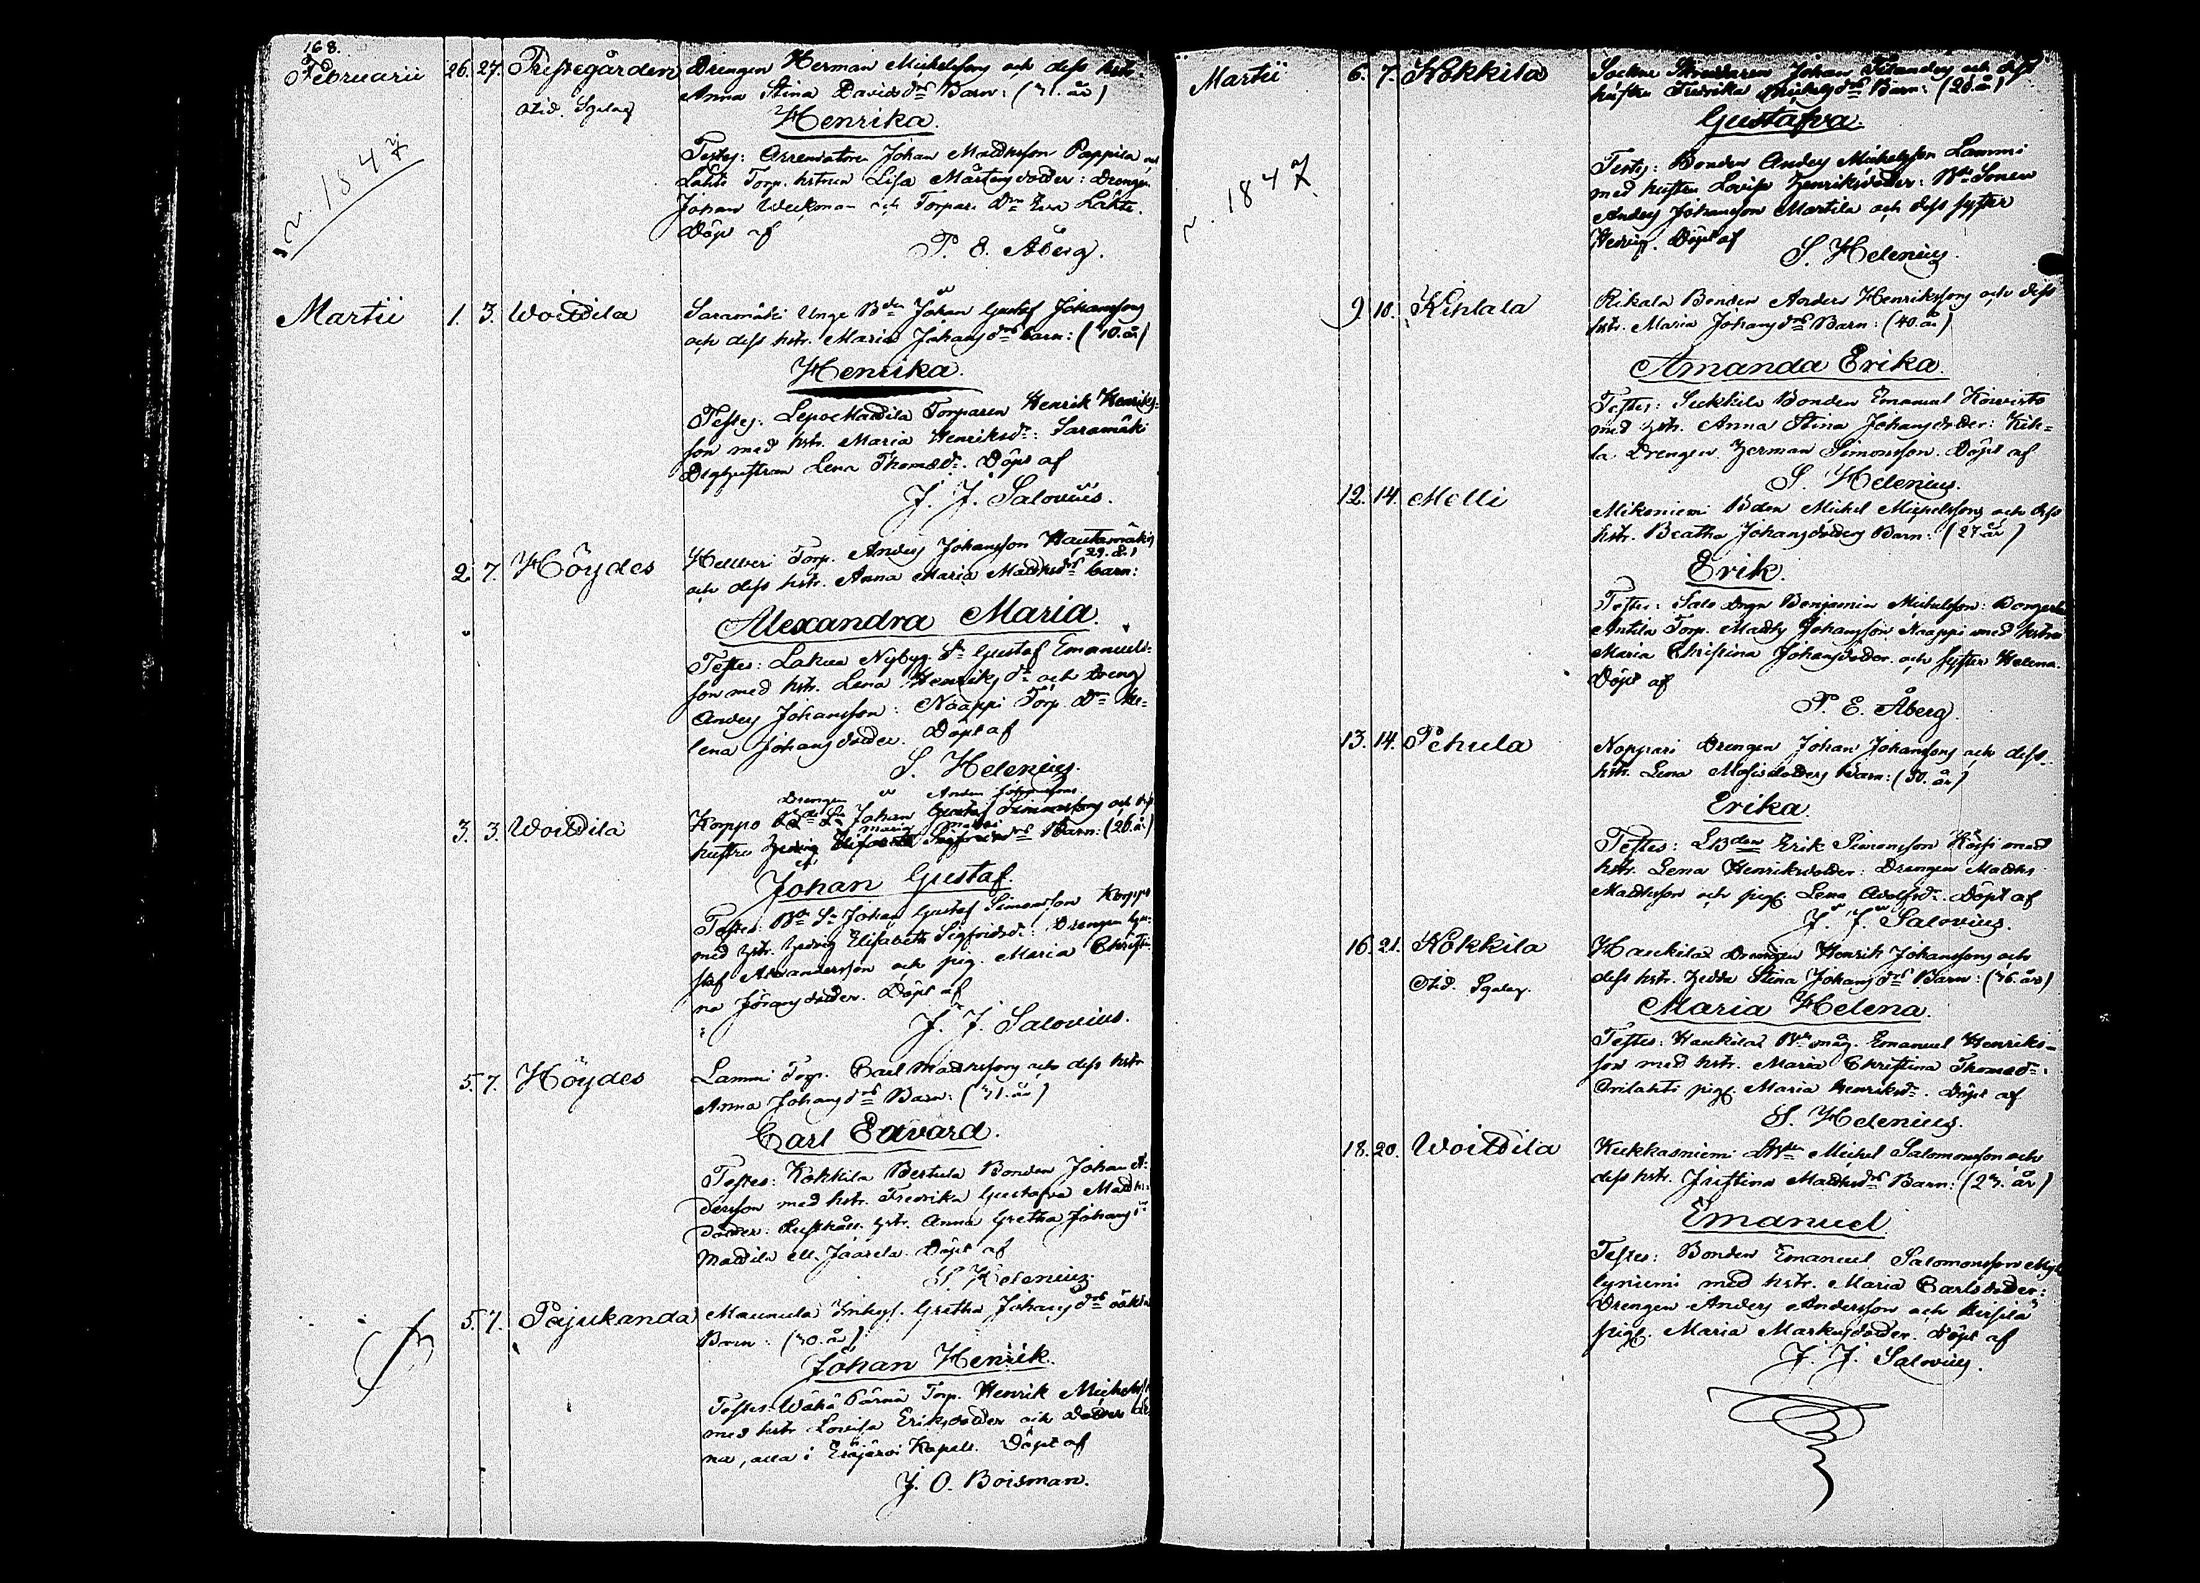 168.
Februarii 26. 27. Prestegården Drengen Herman Michelsons och dess hstr.
otid. Sgelag Anna Stina Davidsdrs Barn: (31. år)
Henrika.
Testes: Arrendatorn Johan Matthsson Pappila och
Lahti Torp. hstrun Lisa Mårtensdotter: Drengen
Johan Weckman och Torpare Dn Eva Lahti.
Döpt af
P. E. Åberg.
1847
Martii 1. 3. Woitdila Saramäki Unge Bden Johan Gustaf Johansons
och dess hstr. Maria Johansdrs barn: (40. år)
Henrika.
Testes: Lepo Mattila Torparen Henrik Henriks-
son med hstr. Maria Henriksdr: Saramäki
Deghustrun Lena Thomædr. Döpt af
J. J. Salovius.
2. 7. Höydes Hellveri Torp. Anders Johansson Hautamäkis
(29. å.)
och dess hstr. Anna Maria Matthsdrs barn:
Alexandra Maria.
Testes: Lakua Nybyg. Sn Gustaf Emanuels-
son med hstr. Lena Henriksdr och Dreng
Anders Johansson: Naappi Torp. Dn He-
lena Johansdotter. Döpt af
S. Helenius.
Drengen Anders Johanssons
3. 3. Woitdila Korppo Johan Gustaf Simonssons och dess
Maria
hustru Hedvig Elisabeth Sigfridsdrs Barn: (26. år)
Johan Gustaf.
Testes: Bde Sn Johan Gustaf Simonsson Korppo
med hstr. Hedvig Elisabeth Sigfridsdr: Drengen Gu-
staf Alexandersson och pig. Maria Christi-
na Johansdotter. Döpt af
J. J. Salovius.
5. 7. Höydes Lammi Torp. Carl Matthssons och dess hstr
Anna Johansdrs Barn: (31. år)
Carl Edvard.
Testes: Kokkila Bertula Bonden Johan An-
dersson med hstr. Fredrika Gustafva Matths-
dotter: Rusthåll. hstr. Anna Gretha Johansdr
Mattila ell. Jaarila. Döpt af
S. Helenius.
5. 7. Pajukanda Maunula Inhys. Gretha Johansdrs oäkta
Barn: (30. år)
Johan Henrik.
Testes: Wähä Pärnä Torp. Henrik Michelss
med hstr Lovisa Eriksdotter och Dotter
na, alla i Eräjärvi Kapell. Döpt af
J. O. Boisman.
Martii 6. 7. Kokkila Sockne Skräddaren Johan och dess
hustru Fredrika Michelsdrs Barn: (26. år)
Gustafva.
Testes: Bonden Anders Michelsson Lammi
med hustru Lovisa Henriksdotter: Bde Sonen
Anders Johansson Martila och dess syster
Hedvig. Döpt af
S. Helenius.
1847
9. 10. Kihlala Rikala Bonden Anders Henrikssons och dess
hstr. Maria Johansdrs Barn: (40. år)
Amanda Erika.
Testes: Seckkila Bonden Emanuel Koivisto
med hstr. Anna Stina Johansdotter: Kih-
la Drengen Herman Simonsson. Döpt af
S. Helenius.
12. 14. Melli Mikoniemi Bden Michel Michelssons och dess
hstr. Beatha Johansdotters Barn: (27 år)
Erik.
Testes: Salo Drgn Benjamin Michelsson:
Antila Torp. Matths Johansson Naappi med hstrun
Maria Christina Johansdotter. och syster Helena.
Döpt af
P. E. Åberg.
13. 14. Pehula Noppari Drengen Johan Johanssons och dess
hstr. Lena Mosisdotters Barn: (30. år)
Erika.
Testes: LBden Erik Simonsson Kässi med
hstr. Lena Henriksdotter: Drengen Matths
Matthsson och pig. Lena Adolfsdr. Döpt af
J. J. Salovius.
16. 21. Kokkila Haukilas Drengen Henrik Johanssons och
Otid. Sgelag. dess hstr. Hedda Stina Johansdrs Barn: (36. år)
Maria Helena.
Testes: Haukilas Bde måg. Emanuel Henriks-
son med hstr. Maria Christina Thomædr.
Orilahti pig. Maria Henriksdr. Döpt af
S. Helenius.
18. 20. Woitdila Kukkasniemi Michel Salomonsson och
dess hstr. Justina Matthsdrs Barn: (23. år)
Emanuel
Testes: Bonden Emanuel Salomonsson Myl-
lyniemi med hstr. Maria Carlsdotter:
Drengen Anders Andersson och
pig. Maria Markusdotter. Döpt af
J. J. Salovius.